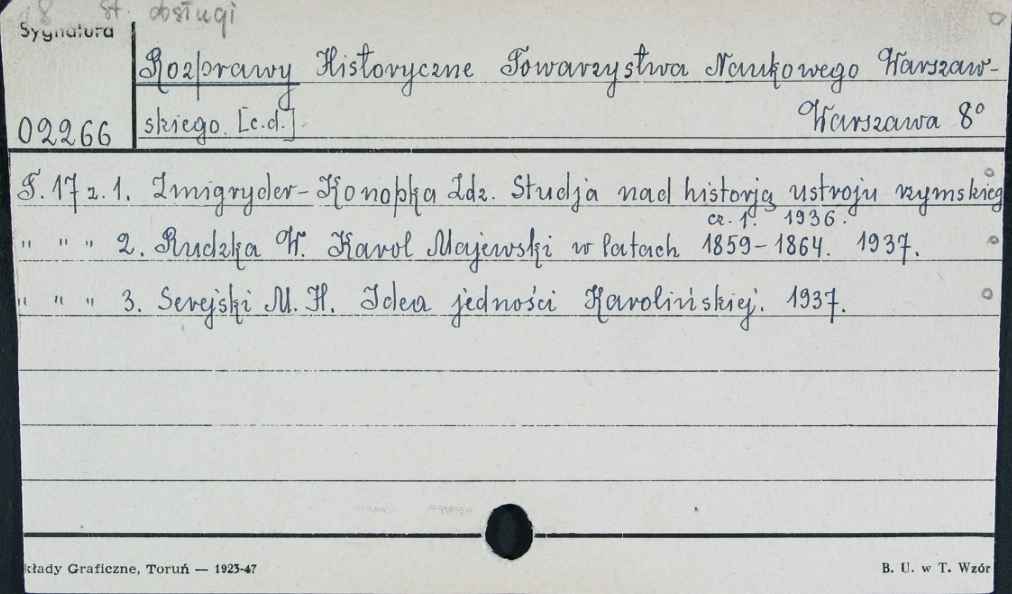 8 St. obsługi
Sygnatura
Rozprawy Historyczne Towarzystwa Naukowego Warszaw-
02266 skiego. [c.d.] Warszawa 8°
T. 17 z. 1. Zmigryder-Konopka Zdz. Studja nad historją ustroju rzymskieg
cz. 1. 1936.
" " " 2. Rudzka W. Karol Majewski w latach 1859-1864. 1937.
" " " 3. Serejski M. H. Idea jedności Karolińskiej. 1937.
kłady Graficzne, Toruń — 1923-47 B. U. w T. Wzór